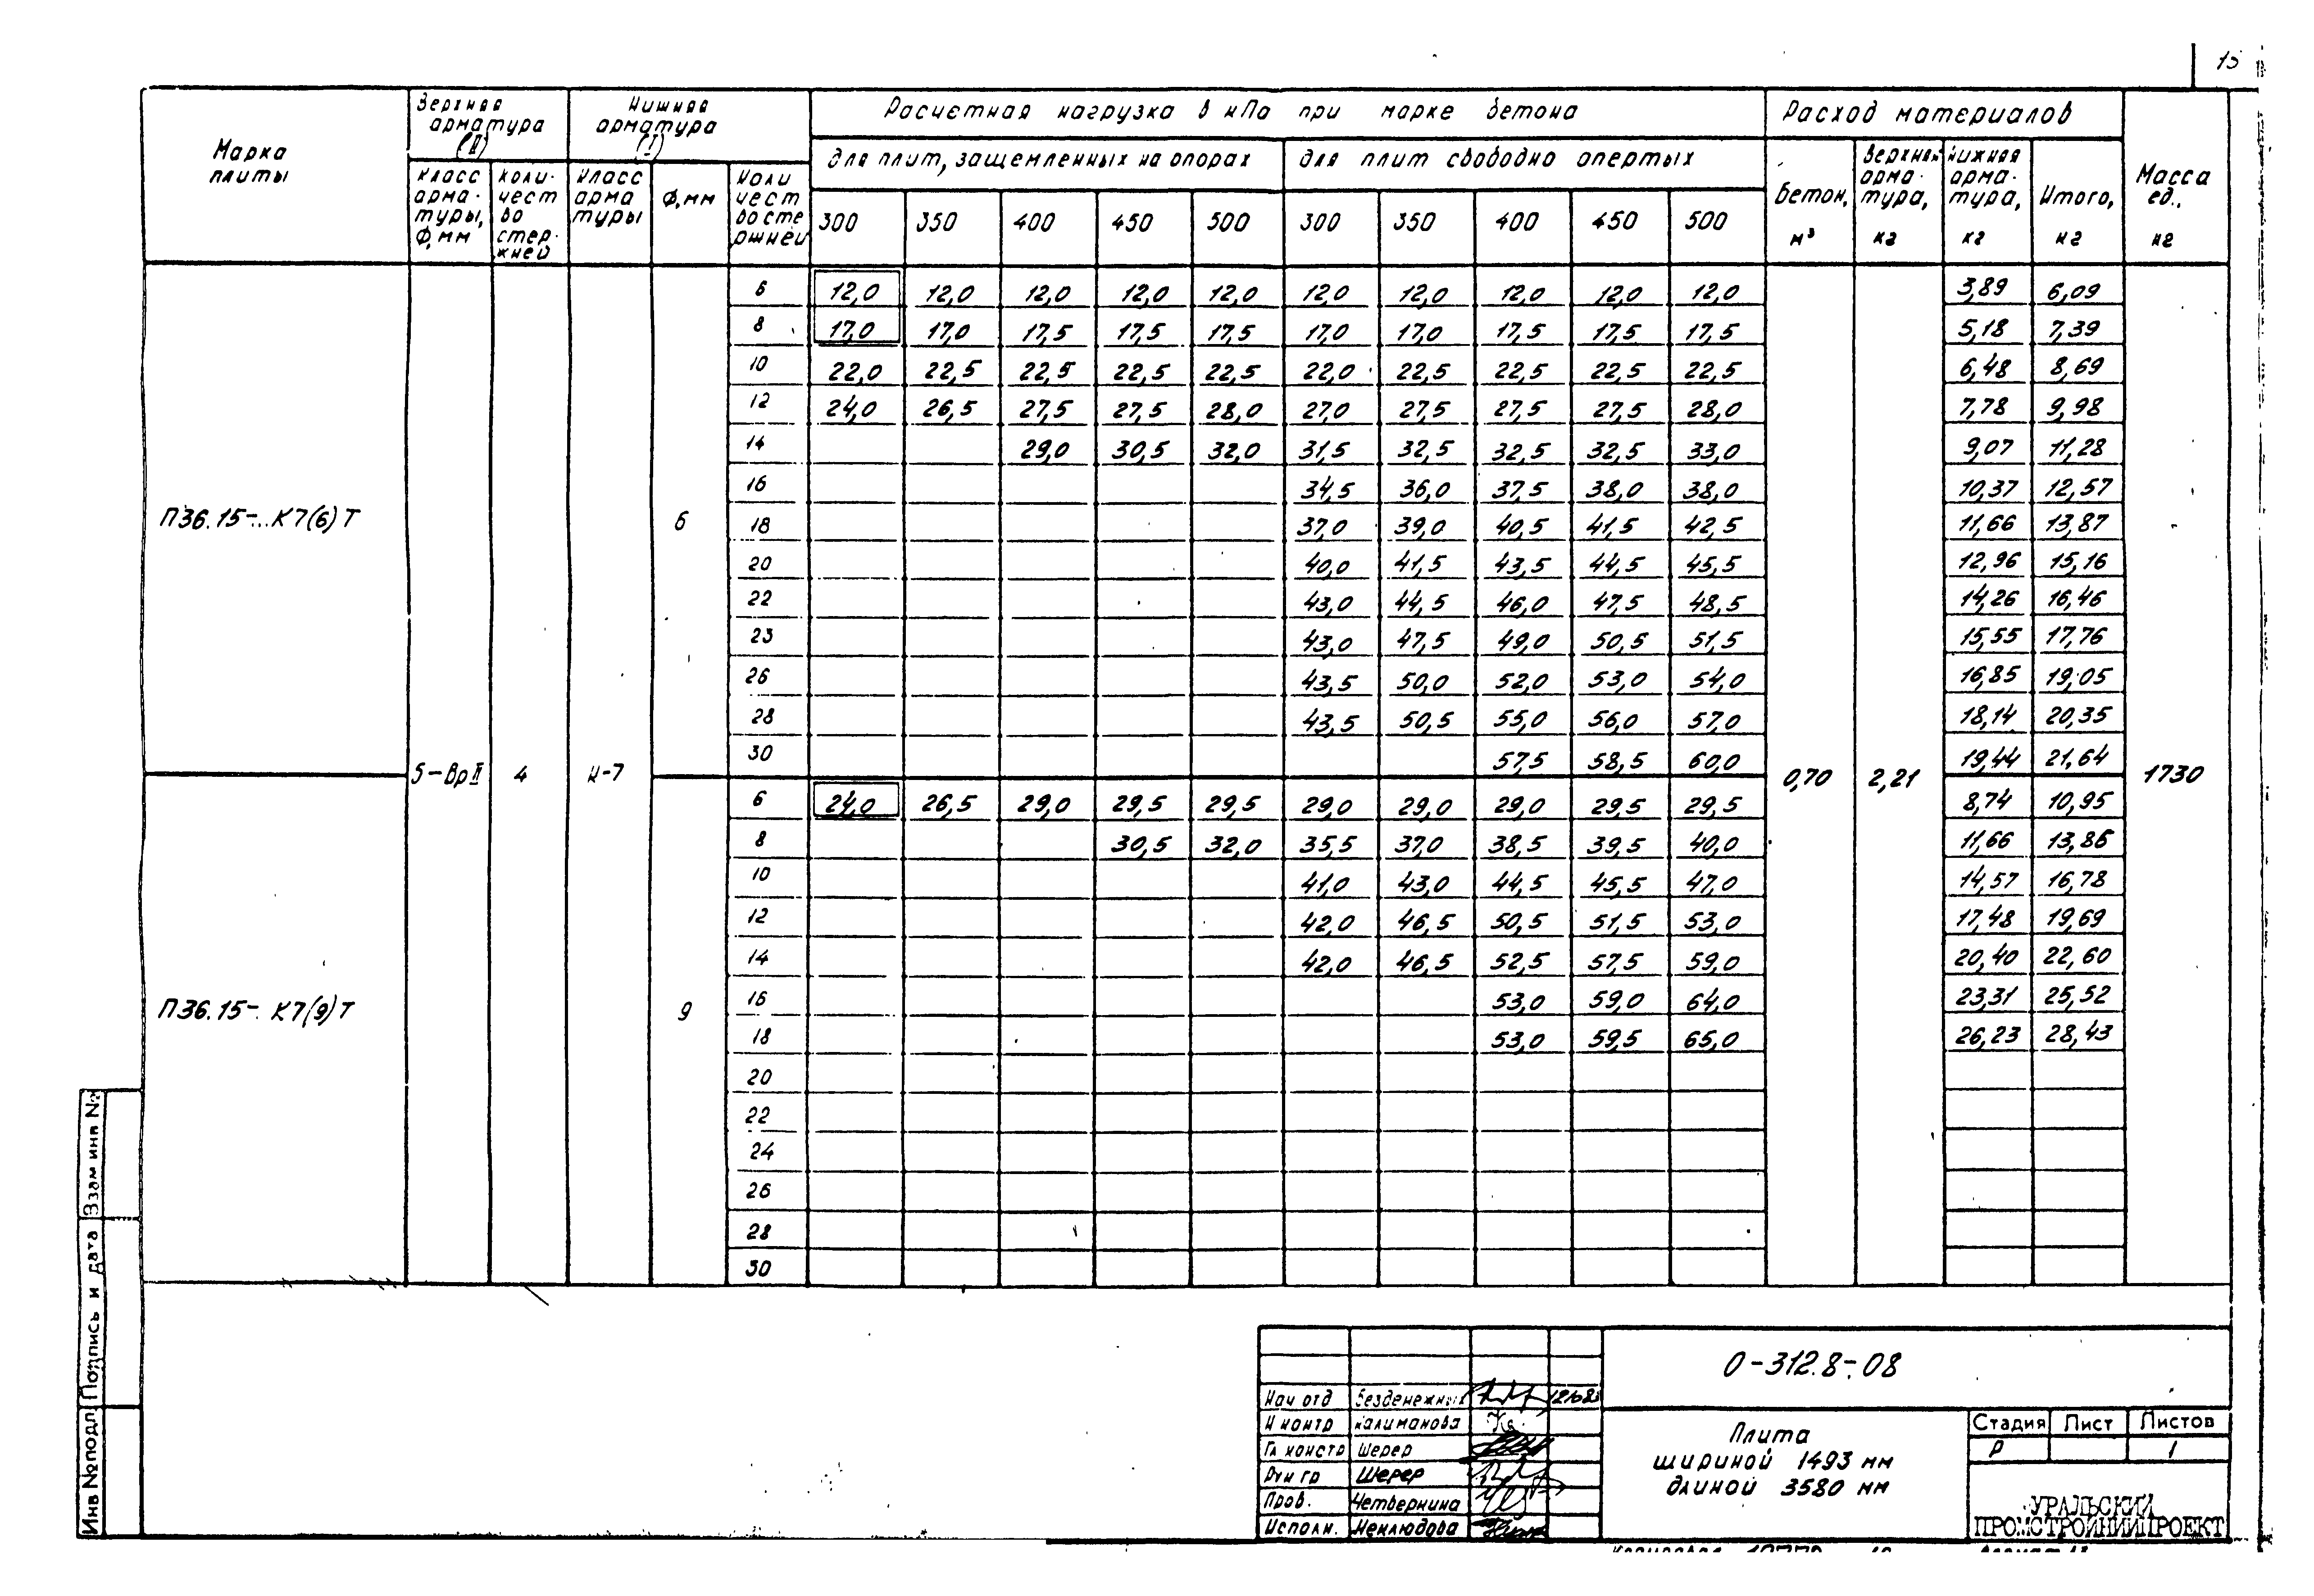 15
Марка плиты
Верхняя арматура (II)
Нижняя арматура (I)
Расчетная нагрузка в кПа при марке бетона
Расход материалов
Масса ед., кг
для плит, защемленных на опорах
для плит свободно опертых
класс арма-туры, Ф, мм
коли-чест во стер-жней
Класс арма туры
Ф, мм
Коли чест во сте ржней
300 350 400 450 500 300 350 400 450 500
Бетон, м³
Верхняя арма-тура, кг
Нижняя арма-тура, кг
Итого, кг
6 12,0 12,0 12,0 12,0 12,0 12,0 12,0 12,0 12,0 12,0 3,89 6,09
8 17,0 17,0 17,5 17,5 17,5 17,0 17,0 17,5 17,5 17,5 5,18 7,39
10 22,0 22,5 22,5 22,5 22,5 22,0 22,5 22,5 22,5 22,5 6,48 8,69
12 24,0 26,5 27,5 27,5 28,0 27,0 27,5 27,5 27,5 28,0 7,78 9,98
14 29,0 30,5 32,0 31,5 32,5 32,5 32,5 33,0 9,07 11,28
16 34,5 36,0 37,5 38,0 38,0 10,37 12,57
П36.15-...К7(6)Т 6 18 37,0 39,0 40,5 41,5 42,5 11,66 13,87
20 40,0 41,5 43,5 44,5 45,5 12,96 15,16
22 43,0 44,5 46,0 47,5 48,5 14,26 16,46
23 43,0 47,5 49,0 50,5 51,5 15,55 17,76
26 43,5 50,0 52,0 53,0 54,0 16,85 19,05
28 43,5 50,5 55,0 56,0 57,0 18,14 20,35
30 57,5 58,5 60,0 19,44 21,64
5-ВрII 4 К-7 0,70 2,21 1730
6 24,0 26,5 29,0 29,5 29,5 29,0 29,0 29,0 29,5 29,5 8,74 10,95
8 30,5 32,0 35,5 37,0 38,5 39,5 40,0 11,66 13,86
10 41,0 43,0 44,5 45,5 47,0 14,57 16,78
12 42,0 46,5 50,5 51,5 53,0 17,48 19,69
14 42,0 46,5 52,5 57,5 59,0 20,40 22,60
П36.15-. К7(9)Т 9 16 53,0 59,0 64,0 23,31 25,52
18 53,0 59,5 65,0 26,23 28,43
20
22
24
26
28
30
Взам инв №
Подпись и дата
Инв №подл.
0-312.8-.08
Нач отд Безденежных
Н контр Калиманова
Гл констр Шерер
Рук гр Шерер
Пров. Четверкина
Исполн. Неклюдова
Плита
шириной 1493 мм
длиной 3580 мм
Стадия Лист Листов
Р 1
УРАЛЬСКИЙ
ПРОМСТРОЙНИИПРОЕКТ